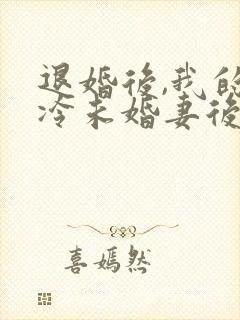 退婚後,我的
冷未婚妻後
喜嫣然